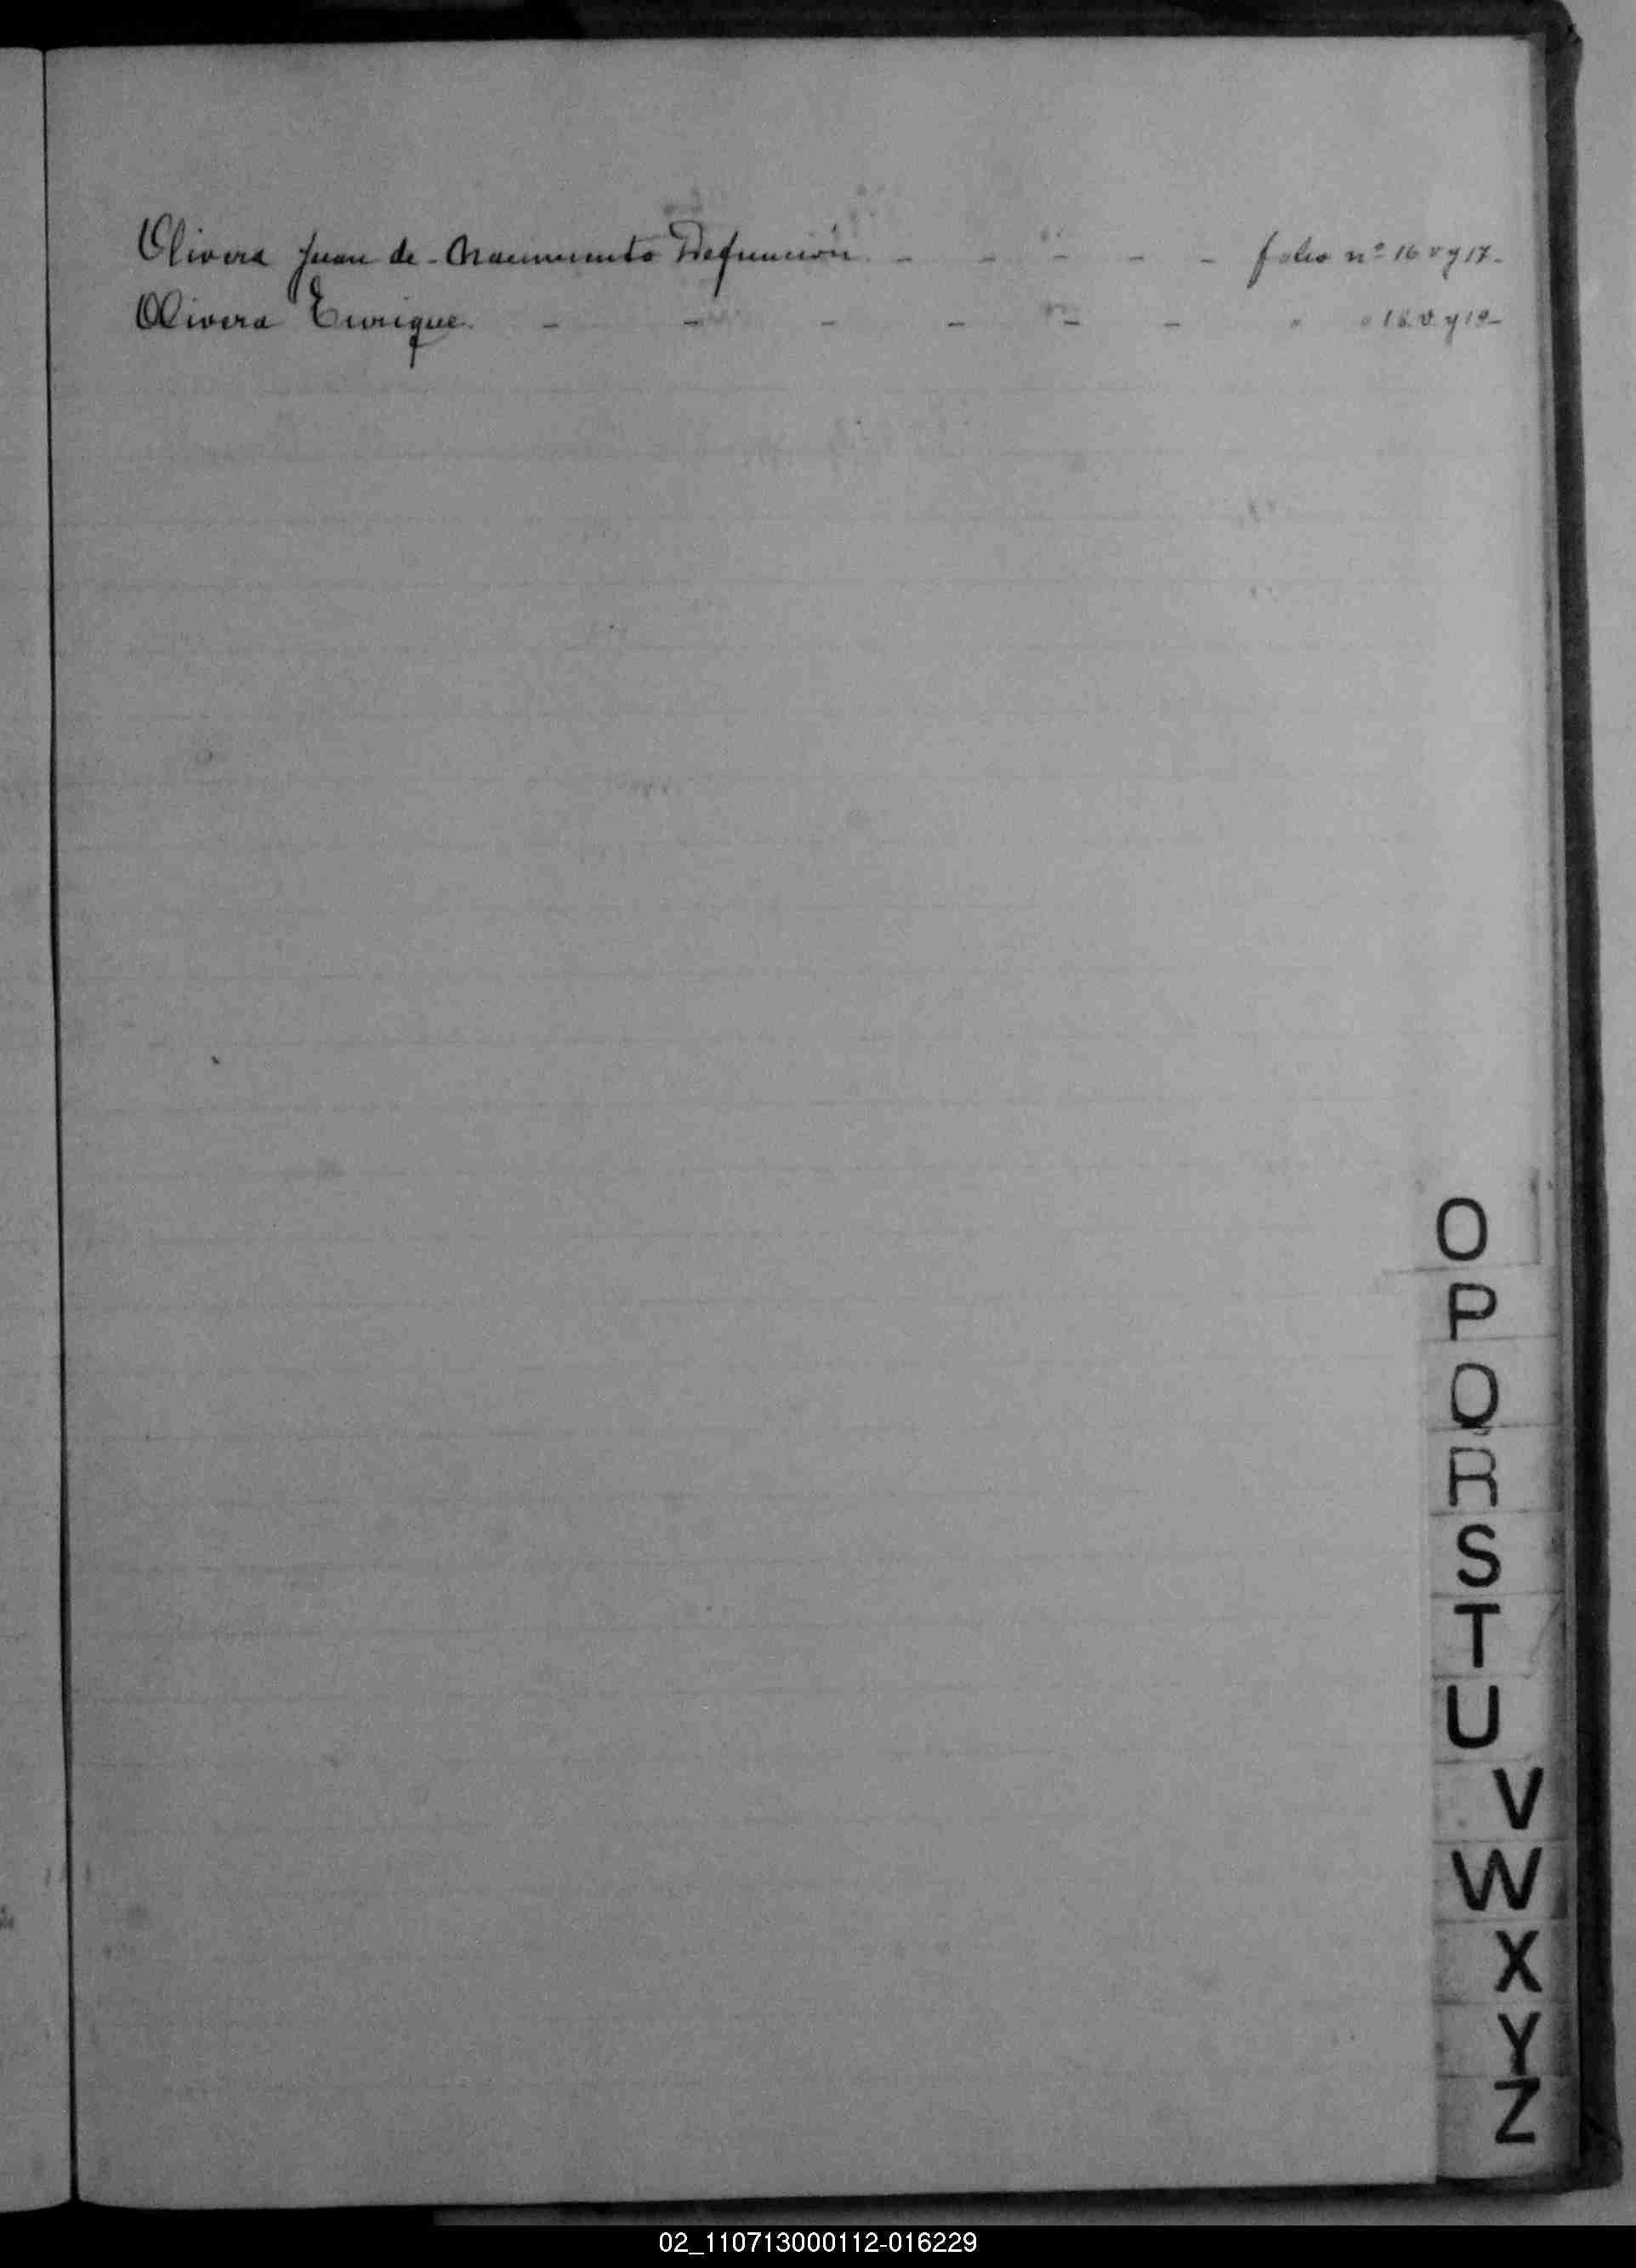 Olivera Juan de - Nacimiento Defunción - - - - - folio nº 16 v y 17-
Olivera Enrique. - - - - - - " " 16. v. y 19-
O
P
Q
R
S
T
U
V
W
X
Y
Z
02_110713000112-016229